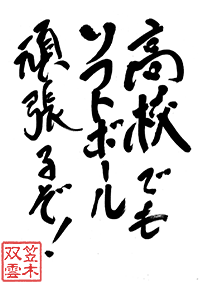 高校でも
ソフトボール
頑張るぞ!
笠木
双雲